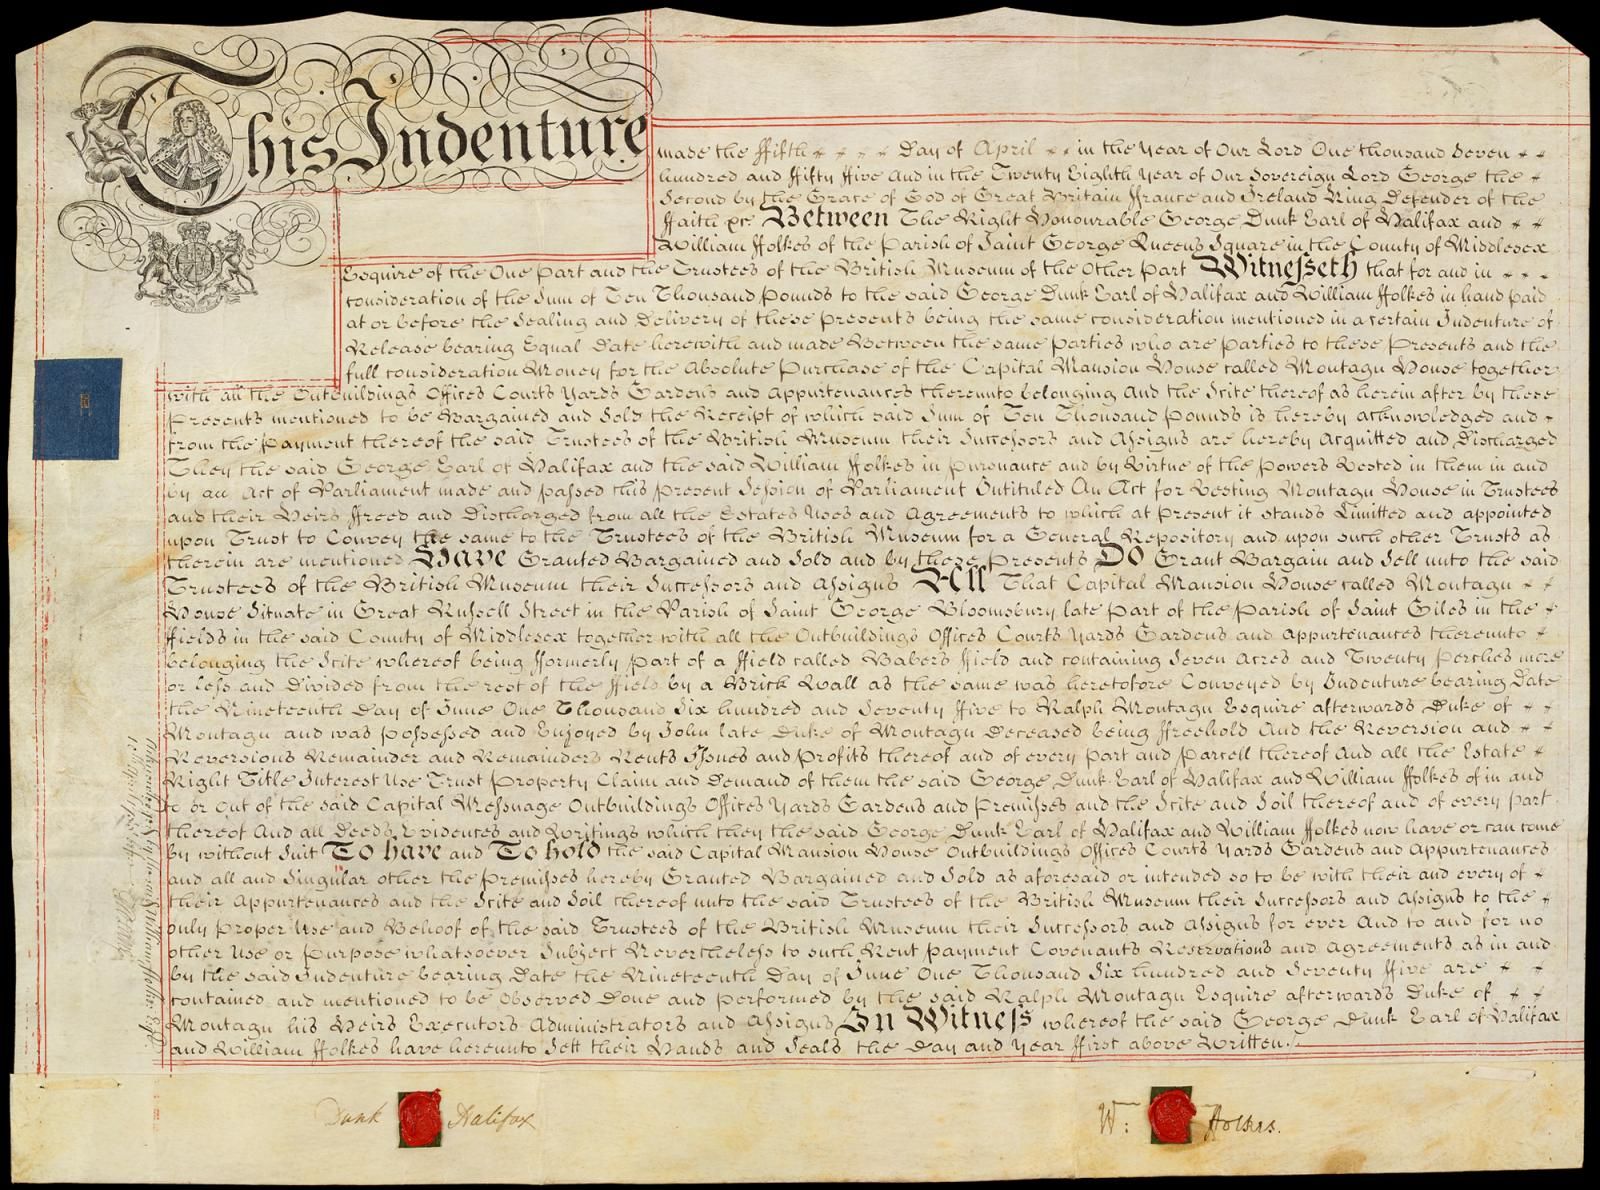 This Indenture
made the ffifth Day of April in the Year of Our Lord One thousand Seven
hundred and ffifty ffive And in the Twenty Eighth Year of Our Sovereign Lord George the
Second by the Grace of God of Great Britain ffrance and Ireland King Defender of the
ffaith &c. Between The Right Honourable George Dunk Earl of Halifax and
William ffolkes of the Parish of Saint George Queens Square in the County of Middlesex
Esquire of the One Part and the Trustees of the British Museum of the Other Part Witnesseth that for and in
consideration of the Sum of Ten Thousand Pounds to the said George Dunk Earl of Halifax and William ffolkes in hand paid
at or before the Sealing and Delivery of these Presents being the same consideration mentioned in a certain Indenture of
Release bearing Equal Date herewith and made Between the same Parties who are Parties to these Presents and the
full consideration Money for the Absolute Purchase of the Capital Mansion House called Montagu House together
with all the Outbuildings Offices Courts Yards Gardens and Appurtenances thereunto belonging And the Scite thereof as herein after by these
Presents mentioned to be Bargained and Sold the Receipt of which said Sum of Ten Thousand Pounds is hereby acknowledged and
from the Payment thereof the said Trustees of the British Museum their Successors and Assigns are hereby Acquitted and Discharged
They the said George Earl of Halifax and the said William ffolkes in pursuance and by Virtue of the Powers Vested in them in and
by an Act of Parliament made and passed this present Session of Parliament Intituled An Act for Vesting Montagu House in Trustees
and their Heirs ffreed and Discharged from all the Estates Uses and Agreements to which at present it stands Limitted and appointed
upon Trust to Convey the same to the Trustees of the British Museum for a General Repository and upon such other Trusts as
therein are mentioned Have Granted Bargained and Sold and by these Presents Do Grant Bargain and Sell unto the said
Trustees of the British Museum their Successors and Assigns All That Capital Mansion House called Montagu
House Situate in Great Russell Street in the Parish of Saint George Bloomsbury late part of the Parish of Saint Giles in the
ffields in the said County of Middlesex together with all the Outbuildings Offices Courts Yards Gardens and Appurtenances thereunto
belonging the Scite whereof being fformerly part of a ffield called Babers ffield and containing Seven Acres and Twenty Perches more
or less and Divided from the rest of the ffield by a Brick Wall as the same was heretofore Conveyed by Indenture bearing Date
the Nineteenth Day of June One Thousand Six hundred and Seventy ffive to Ralph Montagu Esquire afterwards Duke of
Montagu and was possessed and Enjoyed by John late Duke of Montagu Deceased being ffreehold And the Reversion and
Reversions Remainder and Remainders Rents Issues and Profits thereof and of every part and parcell thereof And all the Estate
Right Title Interest Use Trust Property Claim and Demand of them the said George Dunk Earl of Halifax and William ffolkes of in and
to or out of the said Capital Messuage Outbuildings Offices Yards Gardens and Premisses and the Scite and Soil thereof and of every part
thereof And all Deeds Evidences and Writings which they the said George Dunk Earl of Halifax and William ffolkes now have or can come
by without Suit To have and To hold the said Capital Mansion House Outbuildings Offices Courts Yards Gardens and Appurtenances
and all and Singular other the Premisses hereby Granted Bargained and Sold as aforesaid or intended so to be with their and every of
their Appurtenances and the Scite and Soil thereof unto the said Trustees of the British Museum their Successors and Assigns to the
only Proper Use and Behoof of the said Trustees of the British Museum their Successors and Assigns for ever And to and for no
other Use or Purpose whatsoever Subject Nevertheless to such Rent payment Covenants Reservations and Agreements as in and
by the said Indenture bearing Date the Nineteenth Day of June One Thousand Six hundred and Seventy ffive are
contained and mentioned to be Observed Done and performed by the said Ralph Montagu Esquire afterwards Duke of
Montagu his Heirs Executors Administrators and Assigns In Witness whereof the said George Dunk Earl of Halifax
and William ffolkes have hereunto Sett their Hands and Seals the Day and Year ffirst above Written.
Dunk Halifax
W: ffolkes.